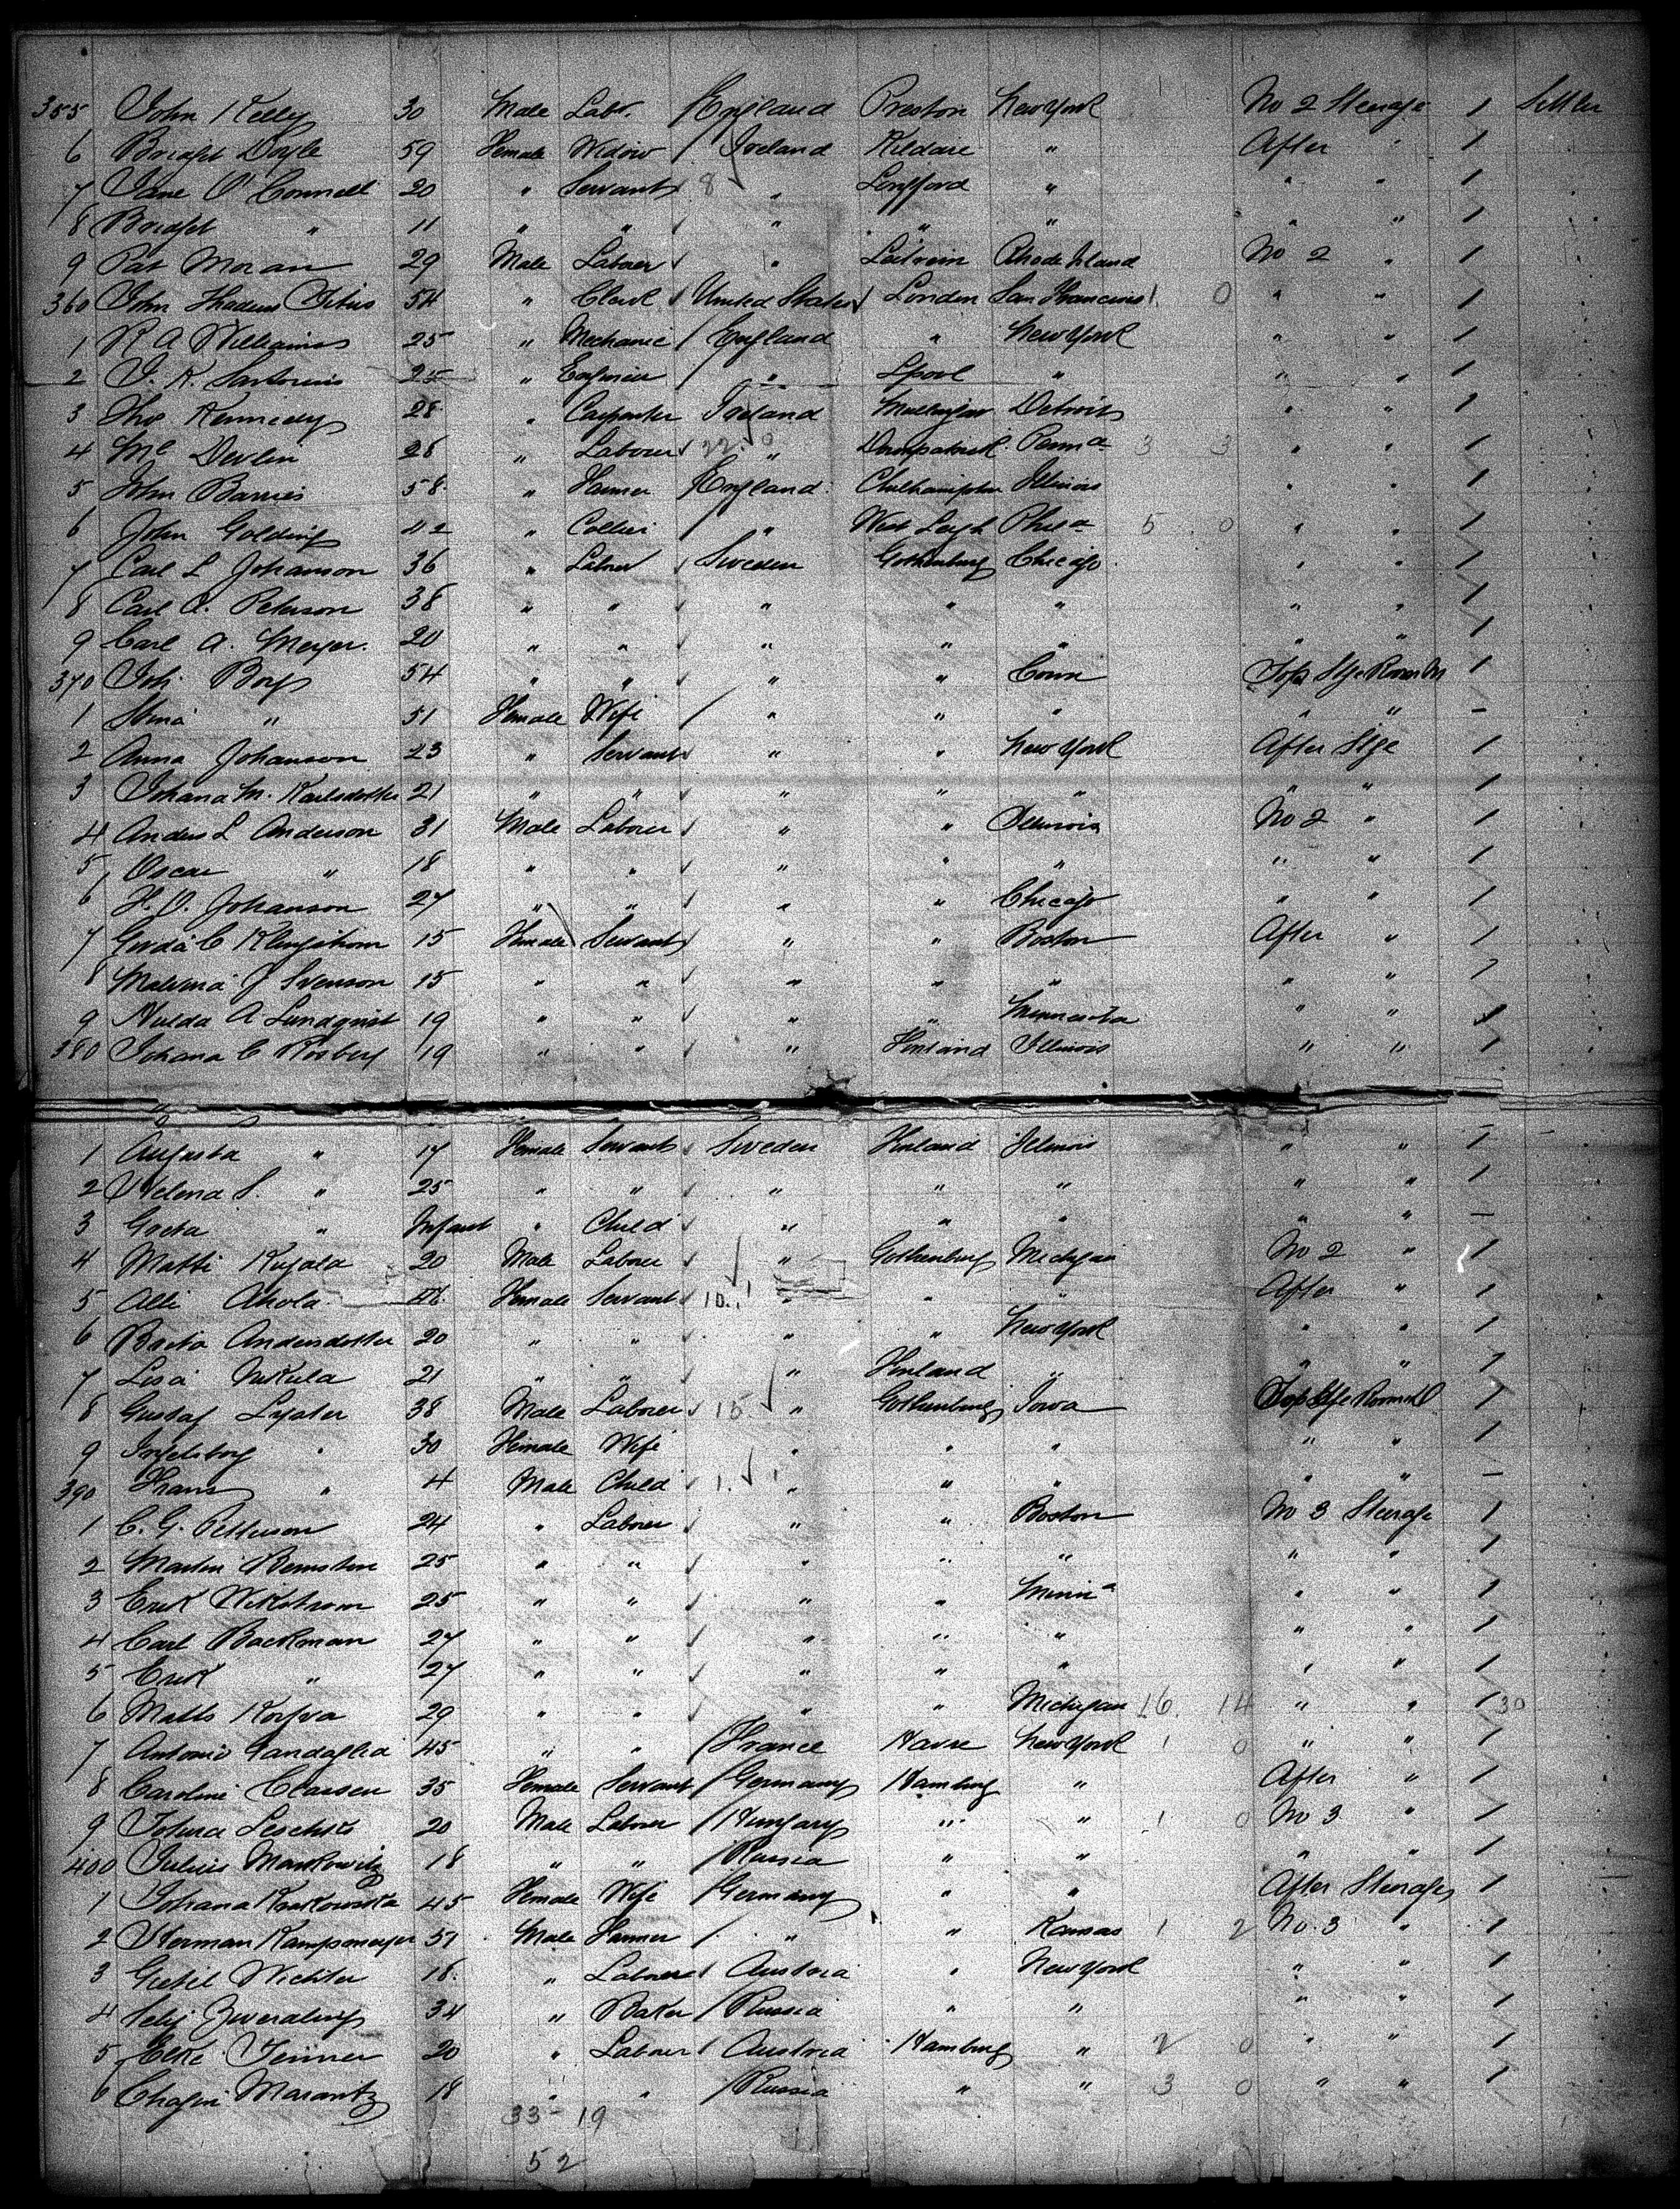 355 John Kelly 30 Male Labr. England Preston New York No 2 Steerage 1 Settler
6 Bridget Doyle 59 Female Widow Ireland Kildare " After " 1
7 Jane O'Connell 20 " Servant 8 " Longford " " " 1
8 Bridget " 11 " " " " " " " 1
9 Pat Moran 29 Male Laborer " Leitrim Rhode Island No 2 " 1
360 John Thadeus Titus 54 " Clerk United States London San Francisco 1 0 " " 1
1 R A Williams 25 " Mechanic England " New York " " 1
2 J. K. Sartorius 25 " Engineer " Lpool " " " 1
3 Tho Kennedy 28 " Carpenter Ireland Mullingar Detroit " " 1
4 Ml Devlin 28 " Laborer 22 0 " Downpatrick Penna 3 3 " " 1
5 John Barnes 58 " Farmer England Illinois " " 1
6 John Golding 42 " Collier " West Leigh Phila 5 0 " " 1
7 Carl L Johanson 36 " Laborer Sweden Gothenburg Chicago " " 1
8 Carl A. Peterson 38 " " " " " " " 1
9 Carl A. Meyer. 20 " " " " " " " 1
370 Joh. Borg 54 " " " " Conn Top Stge Room 1
1 Stina " 51 Female Wife " " " " " –
2 Anna Johanson 23 " Servant " " New York After Stge 1
3 Johana M. Karlsdotter 21 " " " " " " " 1
4 Anders L Anderson 31 Male Laborer " " Illinois No 2 " 1
5 Oscar " 18 " " " " " " " 1
6 H. O. Johanson 27 " " " " Chicago " " 1
7 Gerda C 15 Female Servant " " Boston After " 1
8 Malvina J Svenson 15 " " " " " " " 1
9 Hulda A Lundquist 19 " " " " Minnesota " " 1
380 Johana C Rosberg 19 " " " Finland Illinois " " 1
1 Augusta " 17 Female Servant Sweden Finland Illinois " " 1
2 Helena S. " 25 " " " " " " " 1
3 Greta " Infant " Child " " " " " –
4 Matti Kujala 20 Male Laborer " Gothenburg Michigan No 2 " 1
5 Alli Ahola Female Servant 10 1 " " " After " 1
6 Brita Andersdotter 20 " " " " New York " " 1
7 Lisa 21 " " " Finland " " " 1
8 Gustaf Lyster 38 Male Laborer 15 " Gothenburg Iowa Top Stge Room 1
9 Ingelsborg " 30 Female Wife " " " " " 1
390 Frans " 4 Male Child 1 1 " " " " " –
1 C. G. Petterson 24 " Laborer " " Boston No 3 Steerage 1
2 Martin 25 " " " " " " " 1
3 Erik Wikstrom 25 " " " " Minna " " 1
4 Carl Backman 27 " " " " " " " 1
5 Erik " 27 " " " " " " " 1
6 Matts 29 " " " " Michigan 16 14 " " 1 30
7 Antonio Gandaglia 45 " " France Havre New York 1 0 " " 1
8 Caroline Classen 35 Female Servant Germany Hamburg " After " 1
9 20 Male Laborer Hungary " " 1 0 No 3 " 1
400 Julius Markowitz 18 " " Russia " " " " 1
1 Johana Krakowska 45 Female Wife Germany " " After Steerage 1
2 Herman Kampsmeyer 51 Male Farmer " " Kansas 1 2 No. 3 " 1
3 Wichter 18 " Laborer Austria " New York " " 1
4 Selig Zwerdling 34 " Baker Russia " " " " 1
5 20 " Laborer Austria Hamburg " 2 0 " " 1
6 Marantz 18 " " Russia " " 3 0 " " 1
33 – 19
52